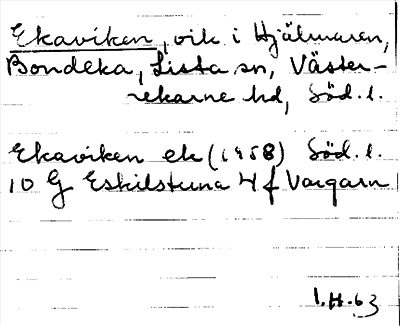 Ekaviken, vik i Hjälmaren,
Bondeka, Lista sn, Väster-
rekarne hd, Söd. l.
Ekaviken ek (1958) Söd. l.
10 G Eskilstuna 4 f Vargarn
1.H.63